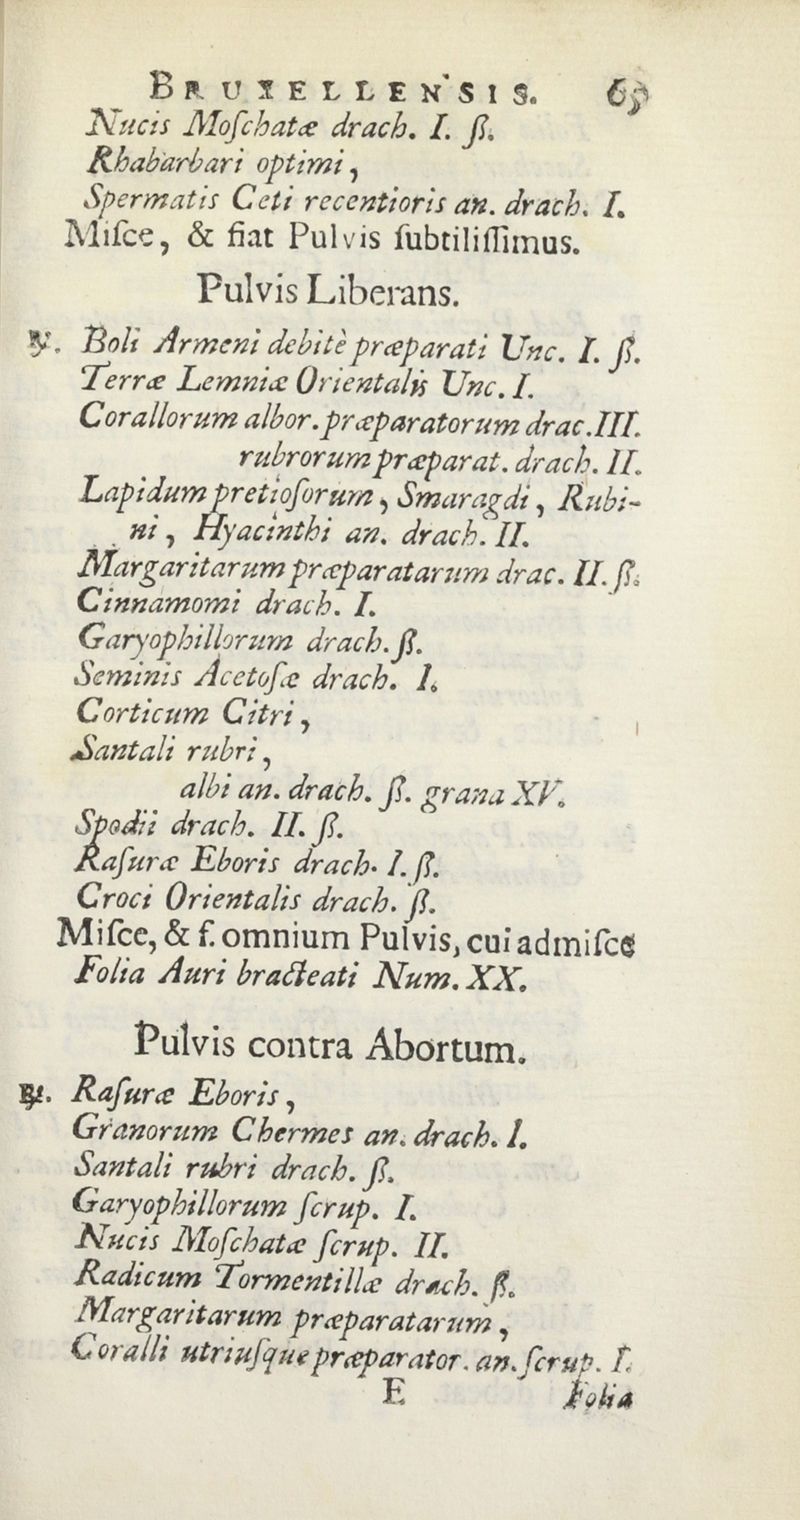 BRUXELLENSIS. 65
Nucis Moſchatæ drach. I. ß.
Rhabarbari optimi,
Spermatis Ceti recentioris an. drach. I.
Miſce, & fiat Pulvis ſubtiliſſimus.
Pulvis Liberans.
℞. Boli Armeni debitè præparati Unc. I. ß.
Terræ Lemniæ Orientalis Unc. I.
Corallorum albor. præparatorum drac. III.
rubrorum præparat. drach. II.
Lapidum pretioſorum, Smaragdi, Rubi-
ni, Hyacinthi an. drach. II.
Margaritarum præparatarum drac. II. ß.
Cinnamomi drach. I.
Garyophillorum drach. ß.
Seminis Acetoſæ drach. I.
Corticum Citri,
Santali rubri,
albi an. drach. ß. grana XV.
Spodii drach. II. ß.
Raſuræ Eboris drach. I. ß.
Croci Orientalis drach. ß.
Miſce, & f. omnium Pulvis, cui admiſce
Folia Auri bracteati Num. XX.
Pulvis contra Abortum.
℞. Raſuræ Eboris,
Granorum Chermes an. drach. I.
Santali rubri drach. ß.
Garyophillorum ſcrup. I.
Nucis Moſchatæ ſcrup. II.
Radicum Tormentillæ drach. ß.
Margaritarum præparatarum,
Coralli utriuſque præparator. an. ſcrup. I.
E Folia